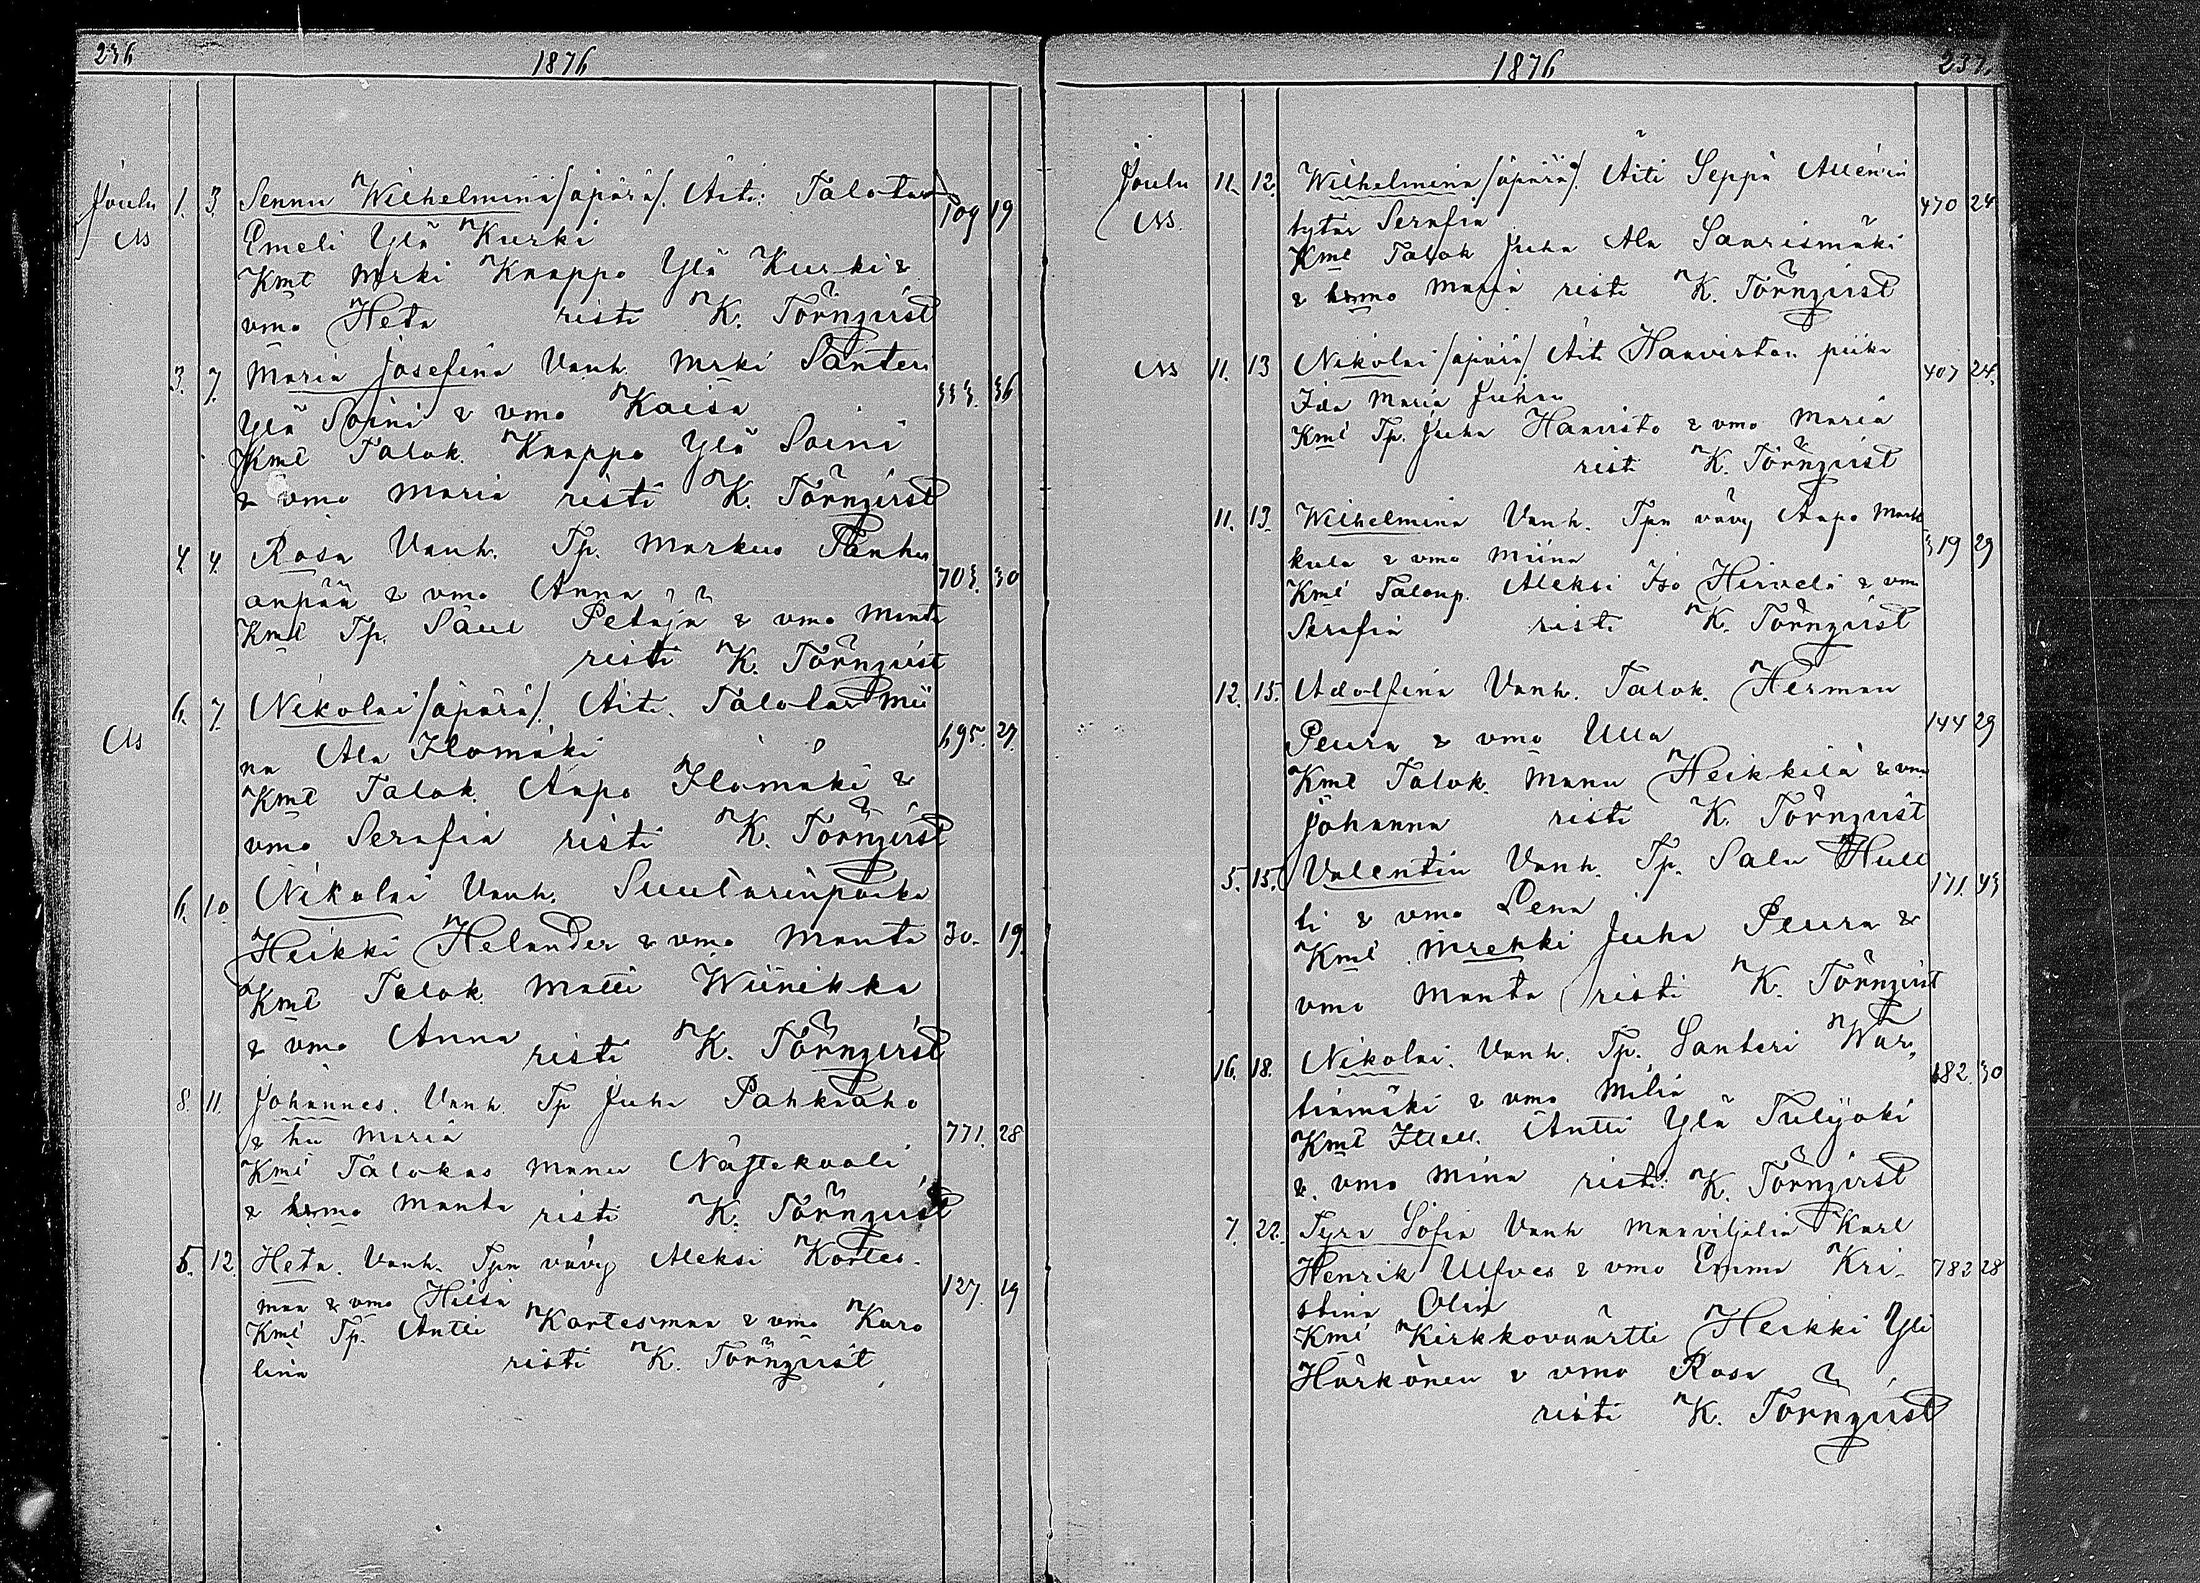 236 1876
Joulu 1. 3. Sennu Wilhelmina /äpärä/. Äiti: Talotar 109 19
Emeli Ylä Kurki
Kmt Mrki Knappo Ylä Kurki &
vmo Heta risti K. Törnqvist
3. 7. Maria Josefina Vanh. Mrki Santeri 333. 36
Ylä Soini & vmo Kaisa
Kml Talok. Knappo Ylä Soini
& vmo Maria risti K. Törnqvist
4. 4. Rosa Vanh. Tp. Markus Panhu 703. 30
anpää & vmo Anna
Kml Tp. Saul Petäjä & vmo Manta
risti K. Törnqvist
6. 7. Nikolai /äpärä/. Äiti. Talotar Mii 695. 27.
na Ala Ilomäki
Kml Talok. Aapo Ilomäki &
vmo Serafia risti K. Törnqvist
6. 10. Nikolai Vanh. Suutarinpoika
Heikki Helander & vmo Manta 30. 19.
Kml Talok. Matti Wiinikka
& vmo Anna risti K. Törnqvist
8. 11. Johannes. Vanh. Tp Juha Pahkaaho
& hu Maria 771. 28
Kml Talokas Manu
& hrmo Manta risti K. Törnqvist
5. 12. Heta. Vanh. Tpn vävy Aleksi Kortes- 127. 19
maa & vmo Hilta
Kml Tp. Antti Kortesmaa & vmo Karo
lina risti K. Törnqvist
1876 237.
Joulu 11. 12. Wilhelmina /äpärä/. Äiti Seppä Allénin 470 24
tytär Serafia
Kml Talok Juha Ala Saarismäki
& hrmo Maria risti K. Törnqvist
11. 13 Nikolai /äpärä/ Äiti Haaviston piika 407 24.
Ida Maria Juhan
Kml Tp. Juha Haavisto & vmo Maria
risti K. Törnqvist
11. 13. Wilhelmina Vanh. Tpn vävy Aapo Mark 319 29
kula & vmo Miina
Kml Talonp. Aleksi Iso Hirvelä & vmo
Serafia risti K. Törnqvist
12. 15. Adolfina Vanh. Talok. Herman 144 29
Peura & vmo Ulla
Kml Talok. Manu Heikkilä & vmo
Johanna risti K. Törnqvist
5. 15. Valentin Vanh. Tp. Salu Hull 171. 43
ti & vmo Lena
Kml Mrehki Juha Peura &
vmo Manta risti K. Törnqvist
16. 18. Nikolai. Vanh. Tp. Santeri War- 682. 30
tiamäki & vmo Milia
Kml Itsell. Antti Ylä Tulijoki
& vmo Mina risti: K. Törnqvist
7. 22. Tyra Sofia Vanh Maaviljeliä Karl
Henrik Ulfves & vmo Emma Kri- 782 28
stina Olin
Kml Kirkkovaartti Heikki Yli
Härkönen & vmo Rosa
risti K. Törnqvist